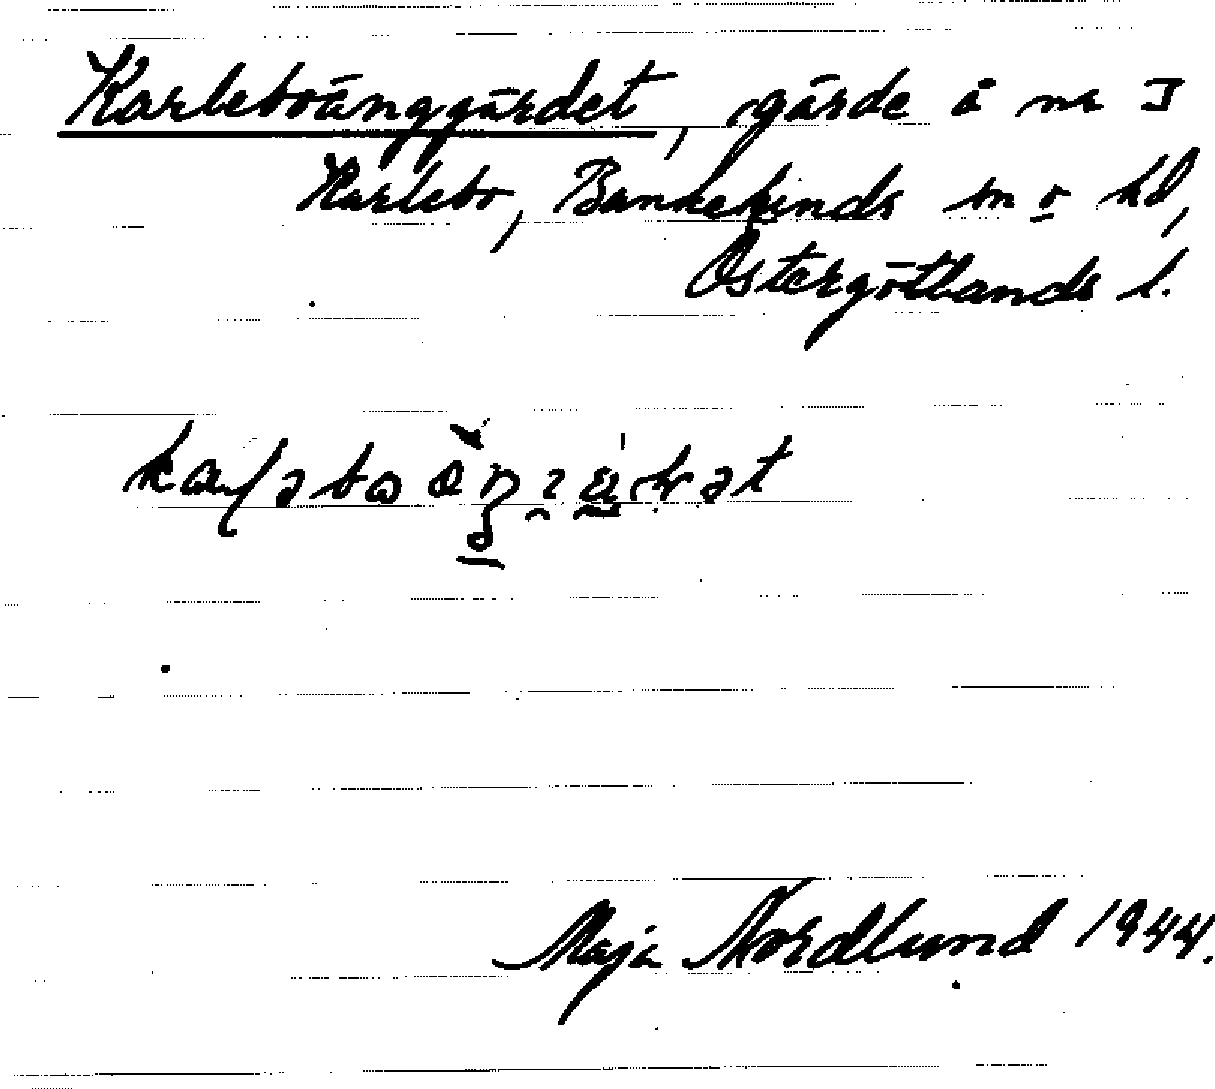 Karleboänggärdet, gärde å nr I
Karlebo, Bankekinds sn o hd,
Östergötlands l.
Maja Nordlund 1944.